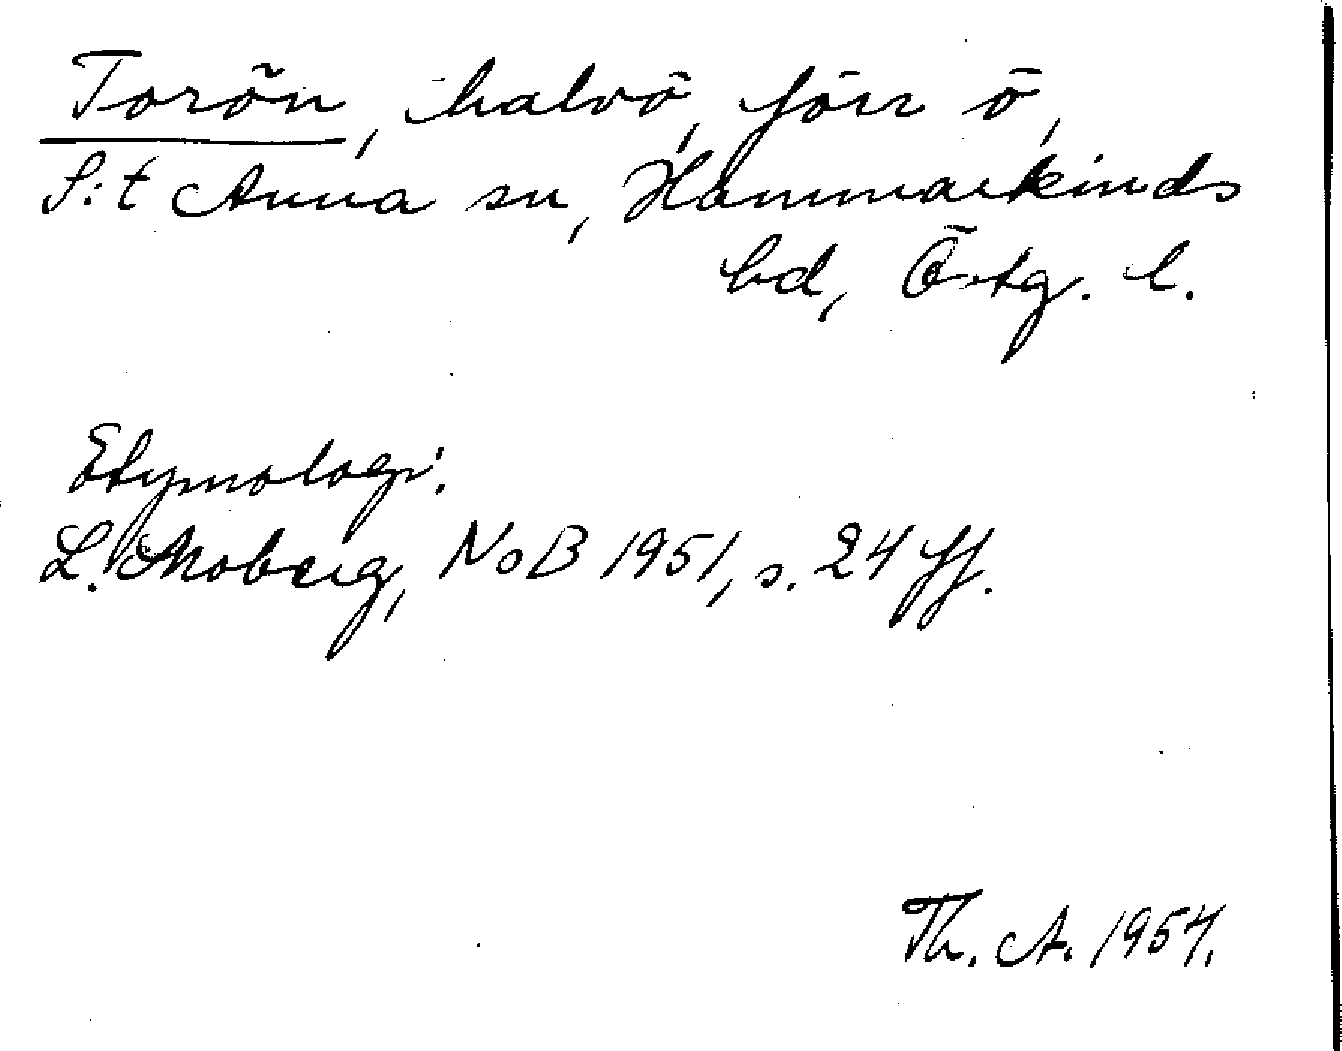 Torön, halvö, förr ö,
S:t Anna sn, Hammarkinds
hd, Östg. l.
Etymologi:
L. Moberg, NoB 1951, s. 24 ff.
Th. A. 1954.